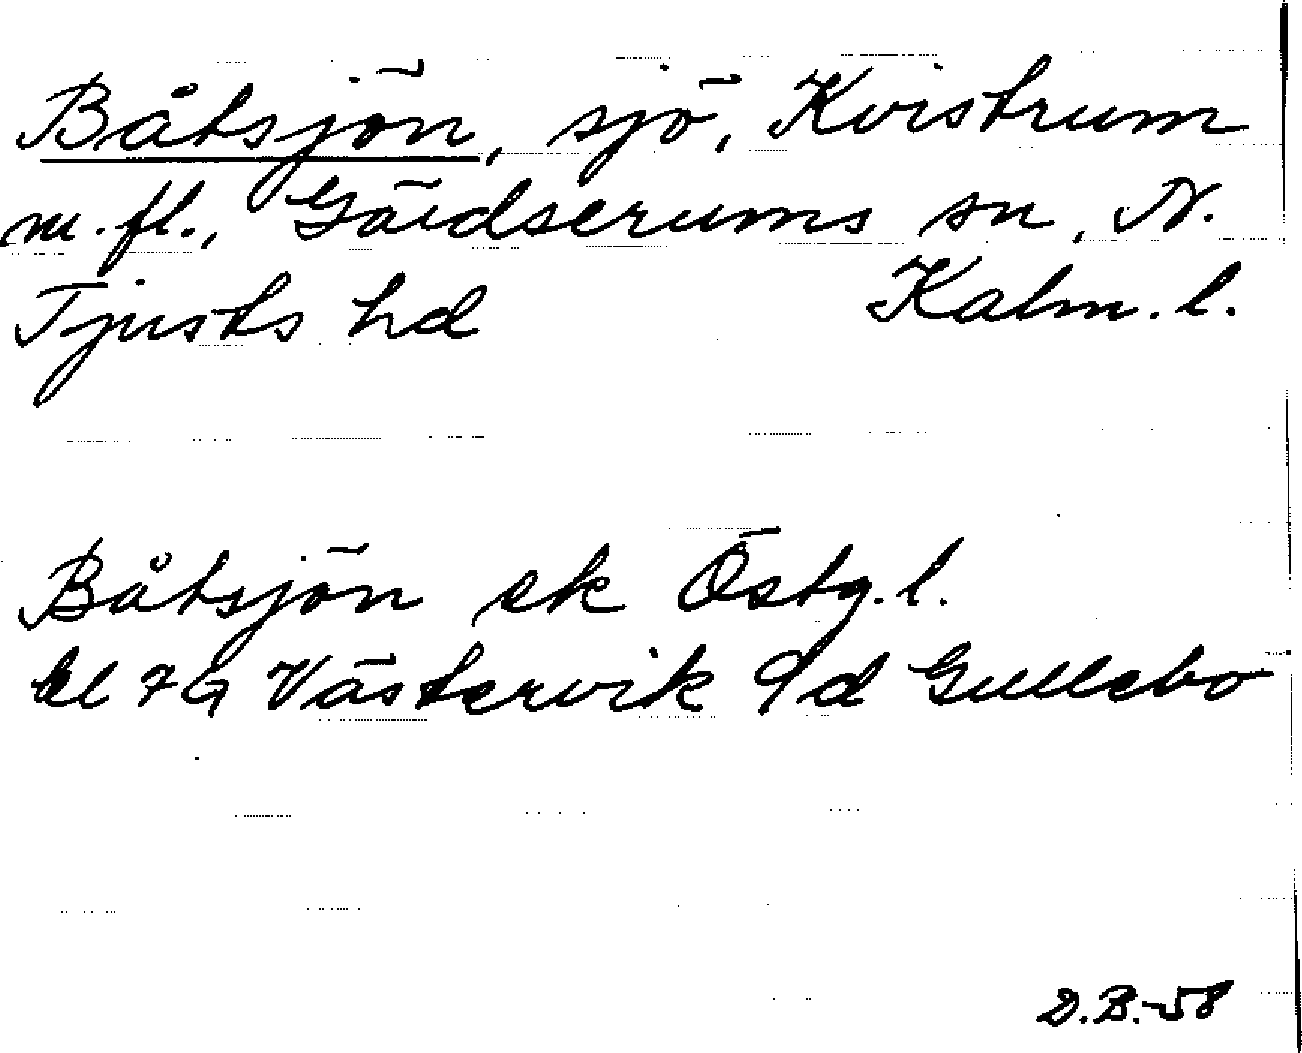 Båtsjön, sjö, Kvistrum
m.fl., Gärdserums sn, N.
Tjusts hd Kalm. l.
Båtsjön ek Östg. l.
bl 7G Västervik 9d Gullebo
D.B.-58